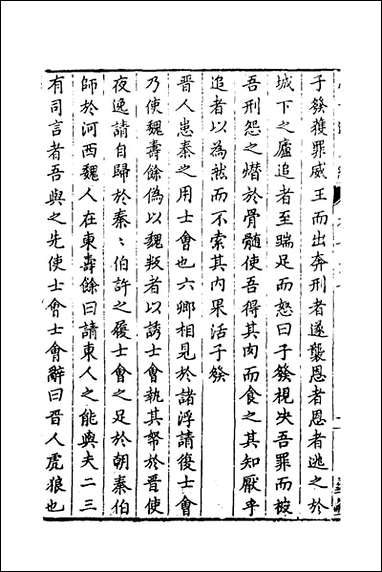 子發獲罪威王而出奔刑者遂襲恩者恩者逃之於
城下之廬追者至踹足而怒曰子發視决吾罪而被
吾刑怨之憯於骨髓使吾得其肉而食之其知厭乎
追者以為然而不索其内果活子發
晋人患秦之用士會也六卿相見於諸浮請復士會
乃使魏壽餘偽以魏叛者以誘士會執其帑於晋使
夜逸請自歸於秦〻伯許之履士會之足於朝秦伯
師於河西魏人在東壽餘曰請東人之能與夫二三
有司言者吾與之先使士會士會辭曰晋人虎狼也